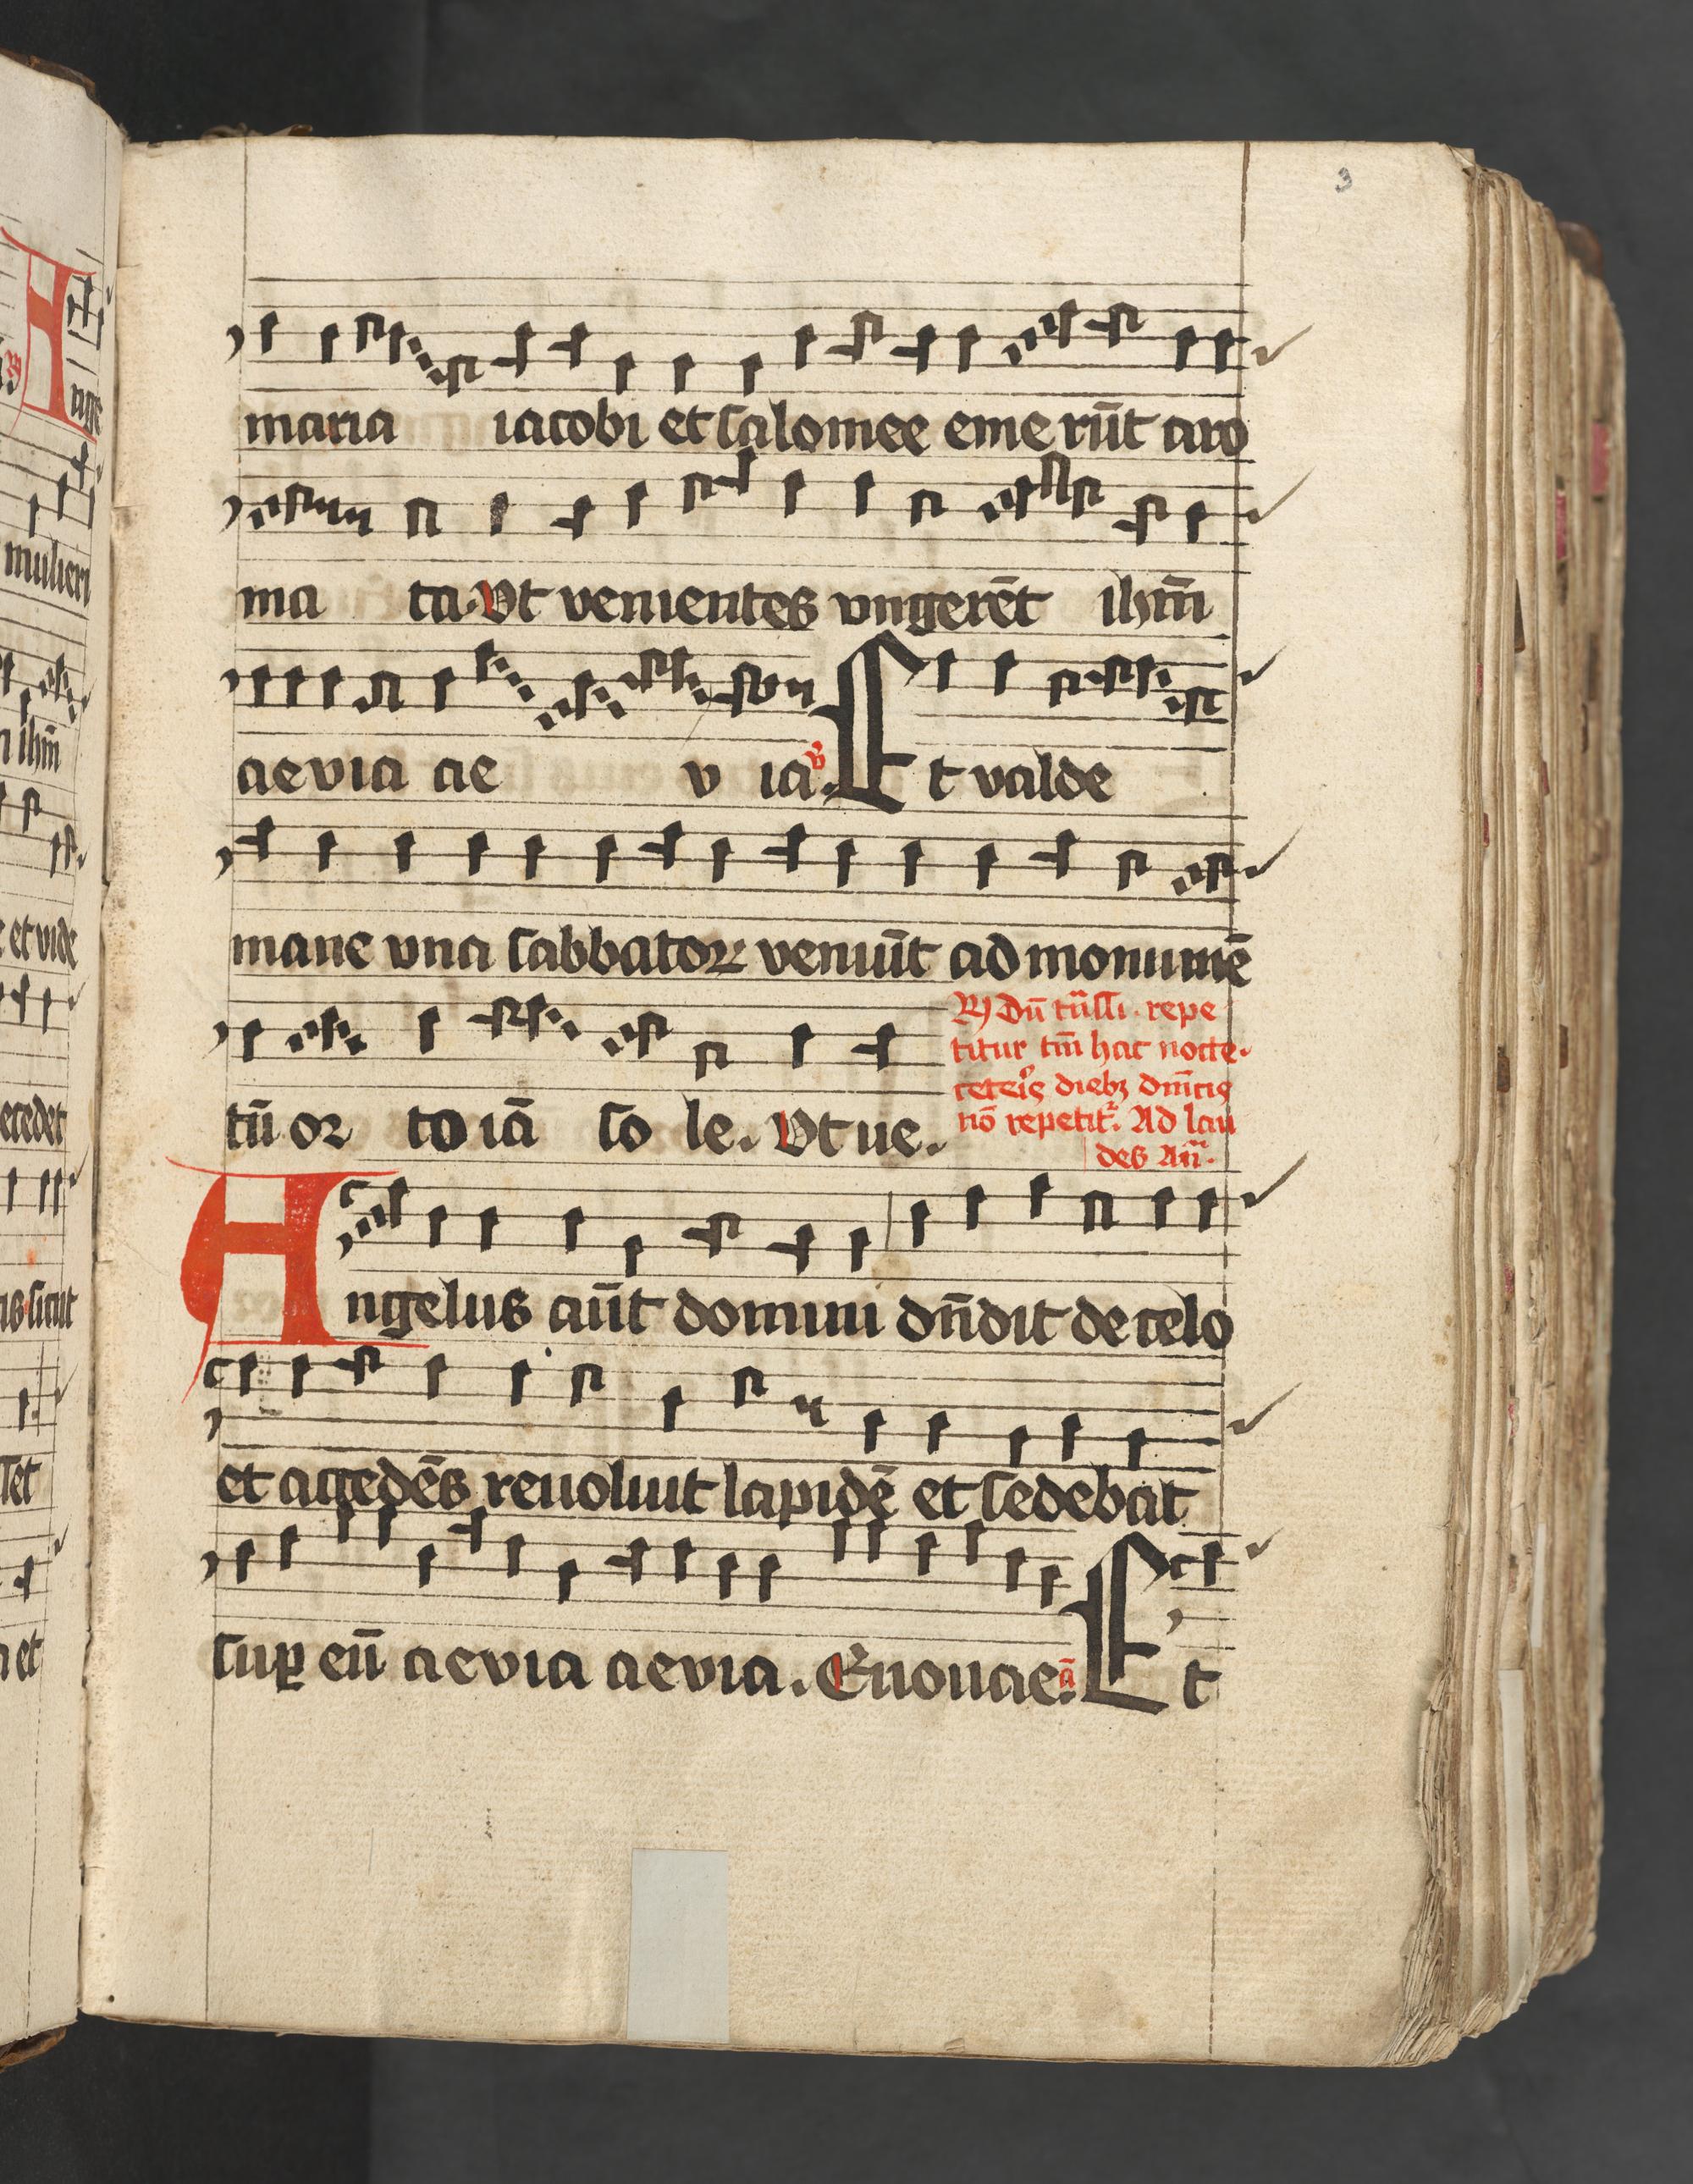 3
maria iacobi et salomee eme rūt aro
ma ta. Vt venientes vngerēt ihm̄
aevia ae v ia. Et valde
mane vna sabbatoꝝ veniūt ad monumē
tū or to iā so le. Vt ue.
repe
titur tm̄ hac nocte.
diebꝫ
nō repetit᷑. Ad lau
des Añ.
Angelus aūt domini dn̄dit de celo
et accedēs reuoluit lapidē et sedebat
suꝑ eū aevia aevia. Euouae. ā Et
mulieri
ihm̄
et vide
sicut
et